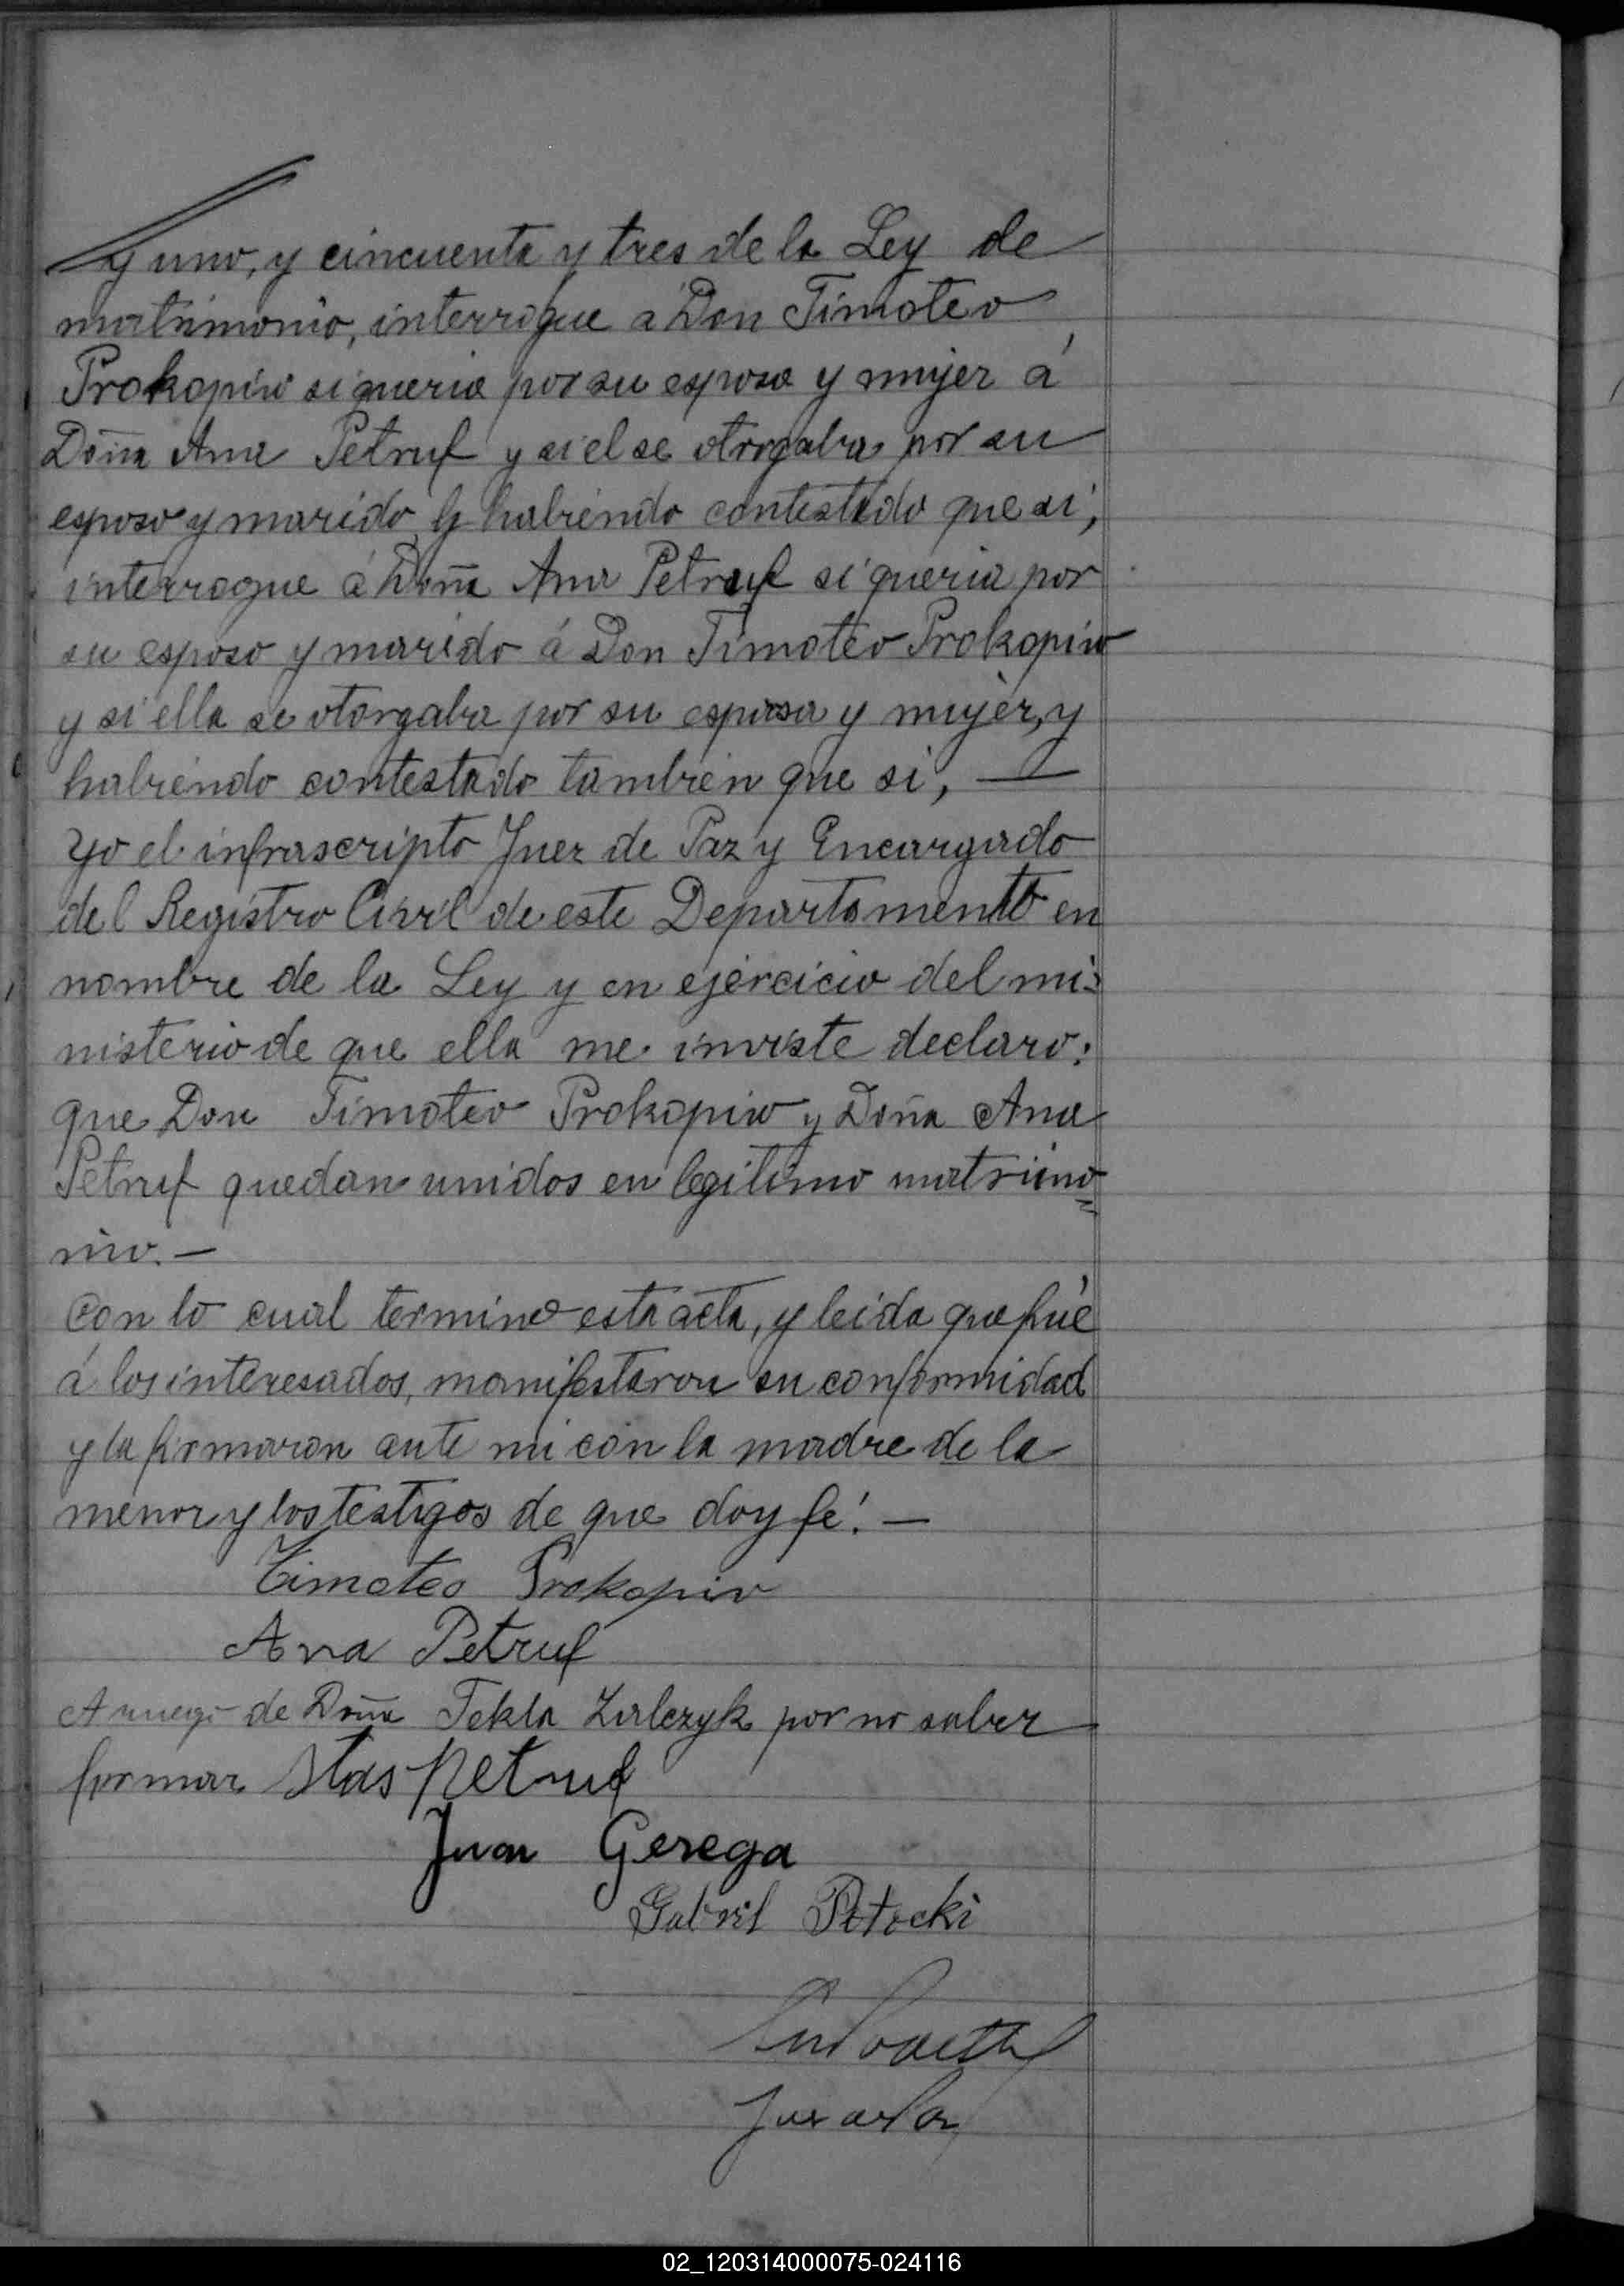 y uno, y cincuenta y tres de la Ley de
matrimonio, interrogue a Don Timoteo
Prokopiw si queria por su esposa y mujer á
Doña Ana Petruf y si el se otorgaba por su
esposo y marido, y habiendo contestado que si,
interrogue á Doña Ana Petruf si queria por
su esposo y marido á Don Timoteo Prokopiw
y si ella se otorgaba por su esposa y mujer, y
habiendo contestado tambien que si, —
Yo el infrascripto Juez de Paz y Encargado
del Registro Civil de este Departamento en
nombre de la Ley y en ejercicio del mi=
nisterio de que ella me inviste declaro:
que Don Timoteo Prokopiw y Doña Ana
Petruf quedan unidos en legitimo matrimo=
nio. —
Con lo cual termino esta acta, y leida que fué
á los interesados, manifestaron su conformidad
y la firmaron ante mi con la madre de la
menor y los testigos de que doy fé. —
Timoteo Prokopiw
Ana Petruf
A ruego de Doña Tekla por no saber
firmar Stas Petruf
Juan Gerega
Gabriel Potocki
02_120314000075-024116